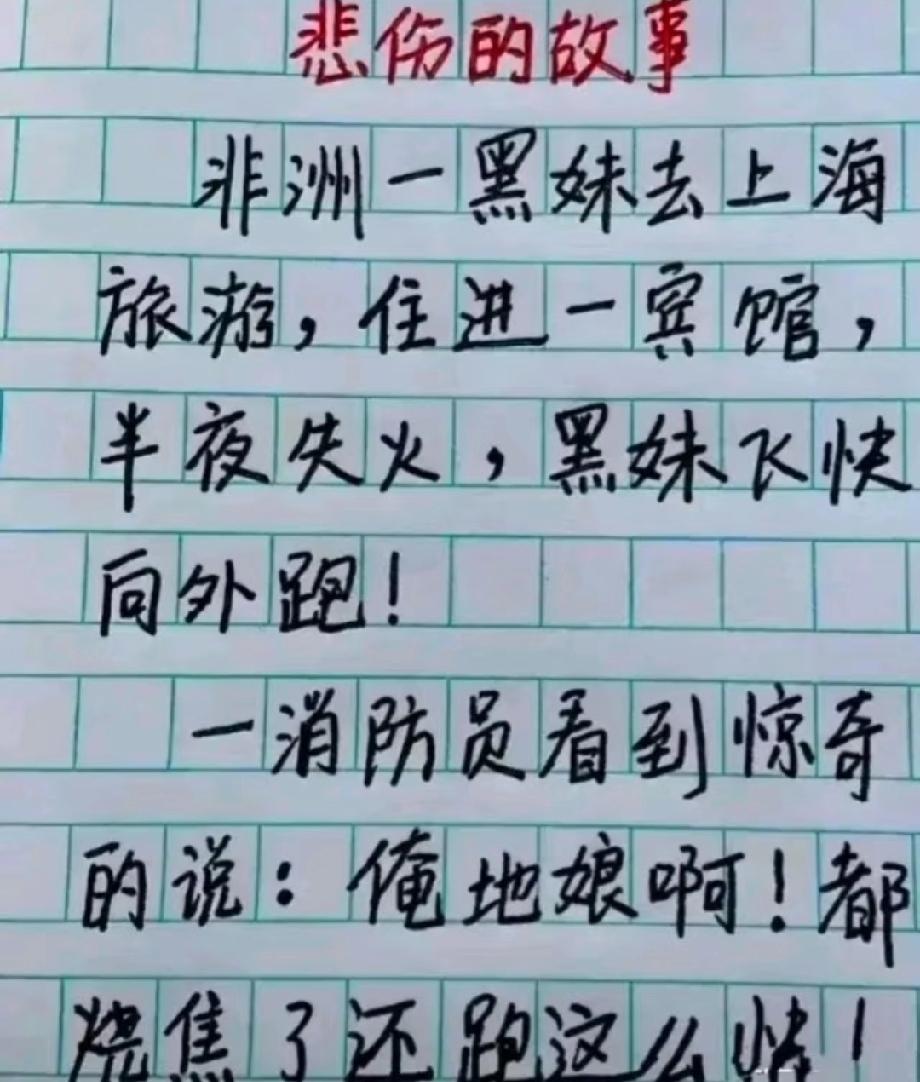 悲伤的故事
非洲一黑妹去上海
旅游，住进一宾馆，
半夜失火，黑妹飞快
向外跑！
一消防员看到惊奇
的说：俺地娘啊！都
烧焦了还跑这么快！